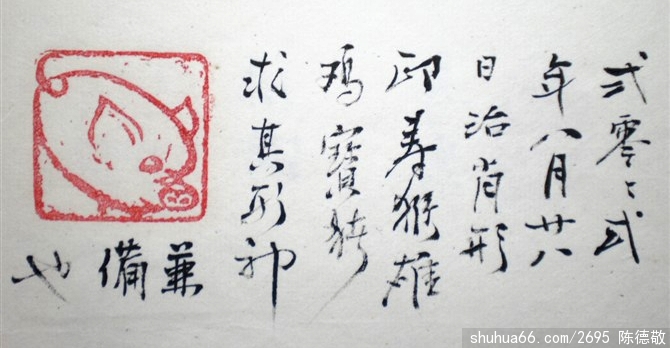 弍零〻弍
年八月廿八
日治肖形
印寿猴雄
鸡寶猪
求其形神
兼
備
也
shuhua66.com/2695 陈德敬